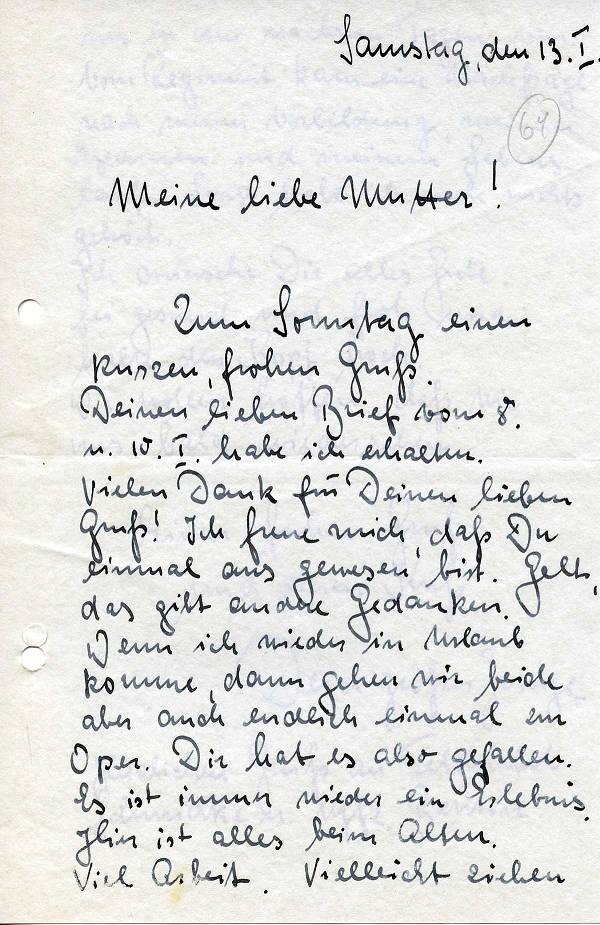 Samstag, den 13. I.
64
Meine liebe Mutter!
Zum Sonntag einen
kurzen, frohen Gruß.
Deinen lieben Brief vom 8.
u. 10. I. habe ich erhalten.
Vielen Dank für Deinen lieben
Gruß! Ich freue mich, daß Du
einmal aus gewesen bist. Gelt,
das gibt andere Gedanken.
Wenn ich wieder in Urlaub
komme, dann gehen wir beide
aber auch endlich einmal zur
Oper. Dir hat es also gefallen.
Es ist immer wieder ein Erlebnis.
Hier ist alles beim Alten.
Viel Arbeit. Vielleicht ziehen